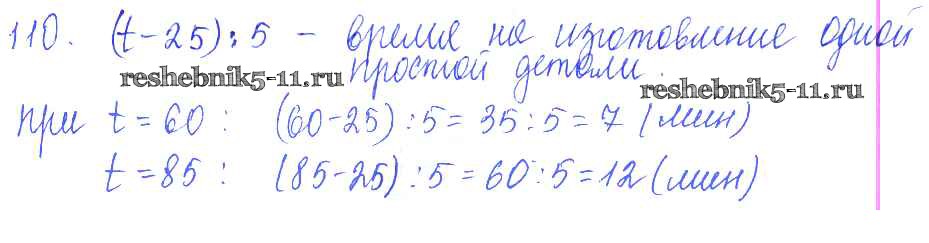 110. (t-25):5 - время на изготовление одной
reshebnik5-11.ru простой детали. reshebnik5-11.ru
при t=60 : (60-25):5=35:5=7 (мин)
t=85 : (85-25):5=60:5=12 (мин)